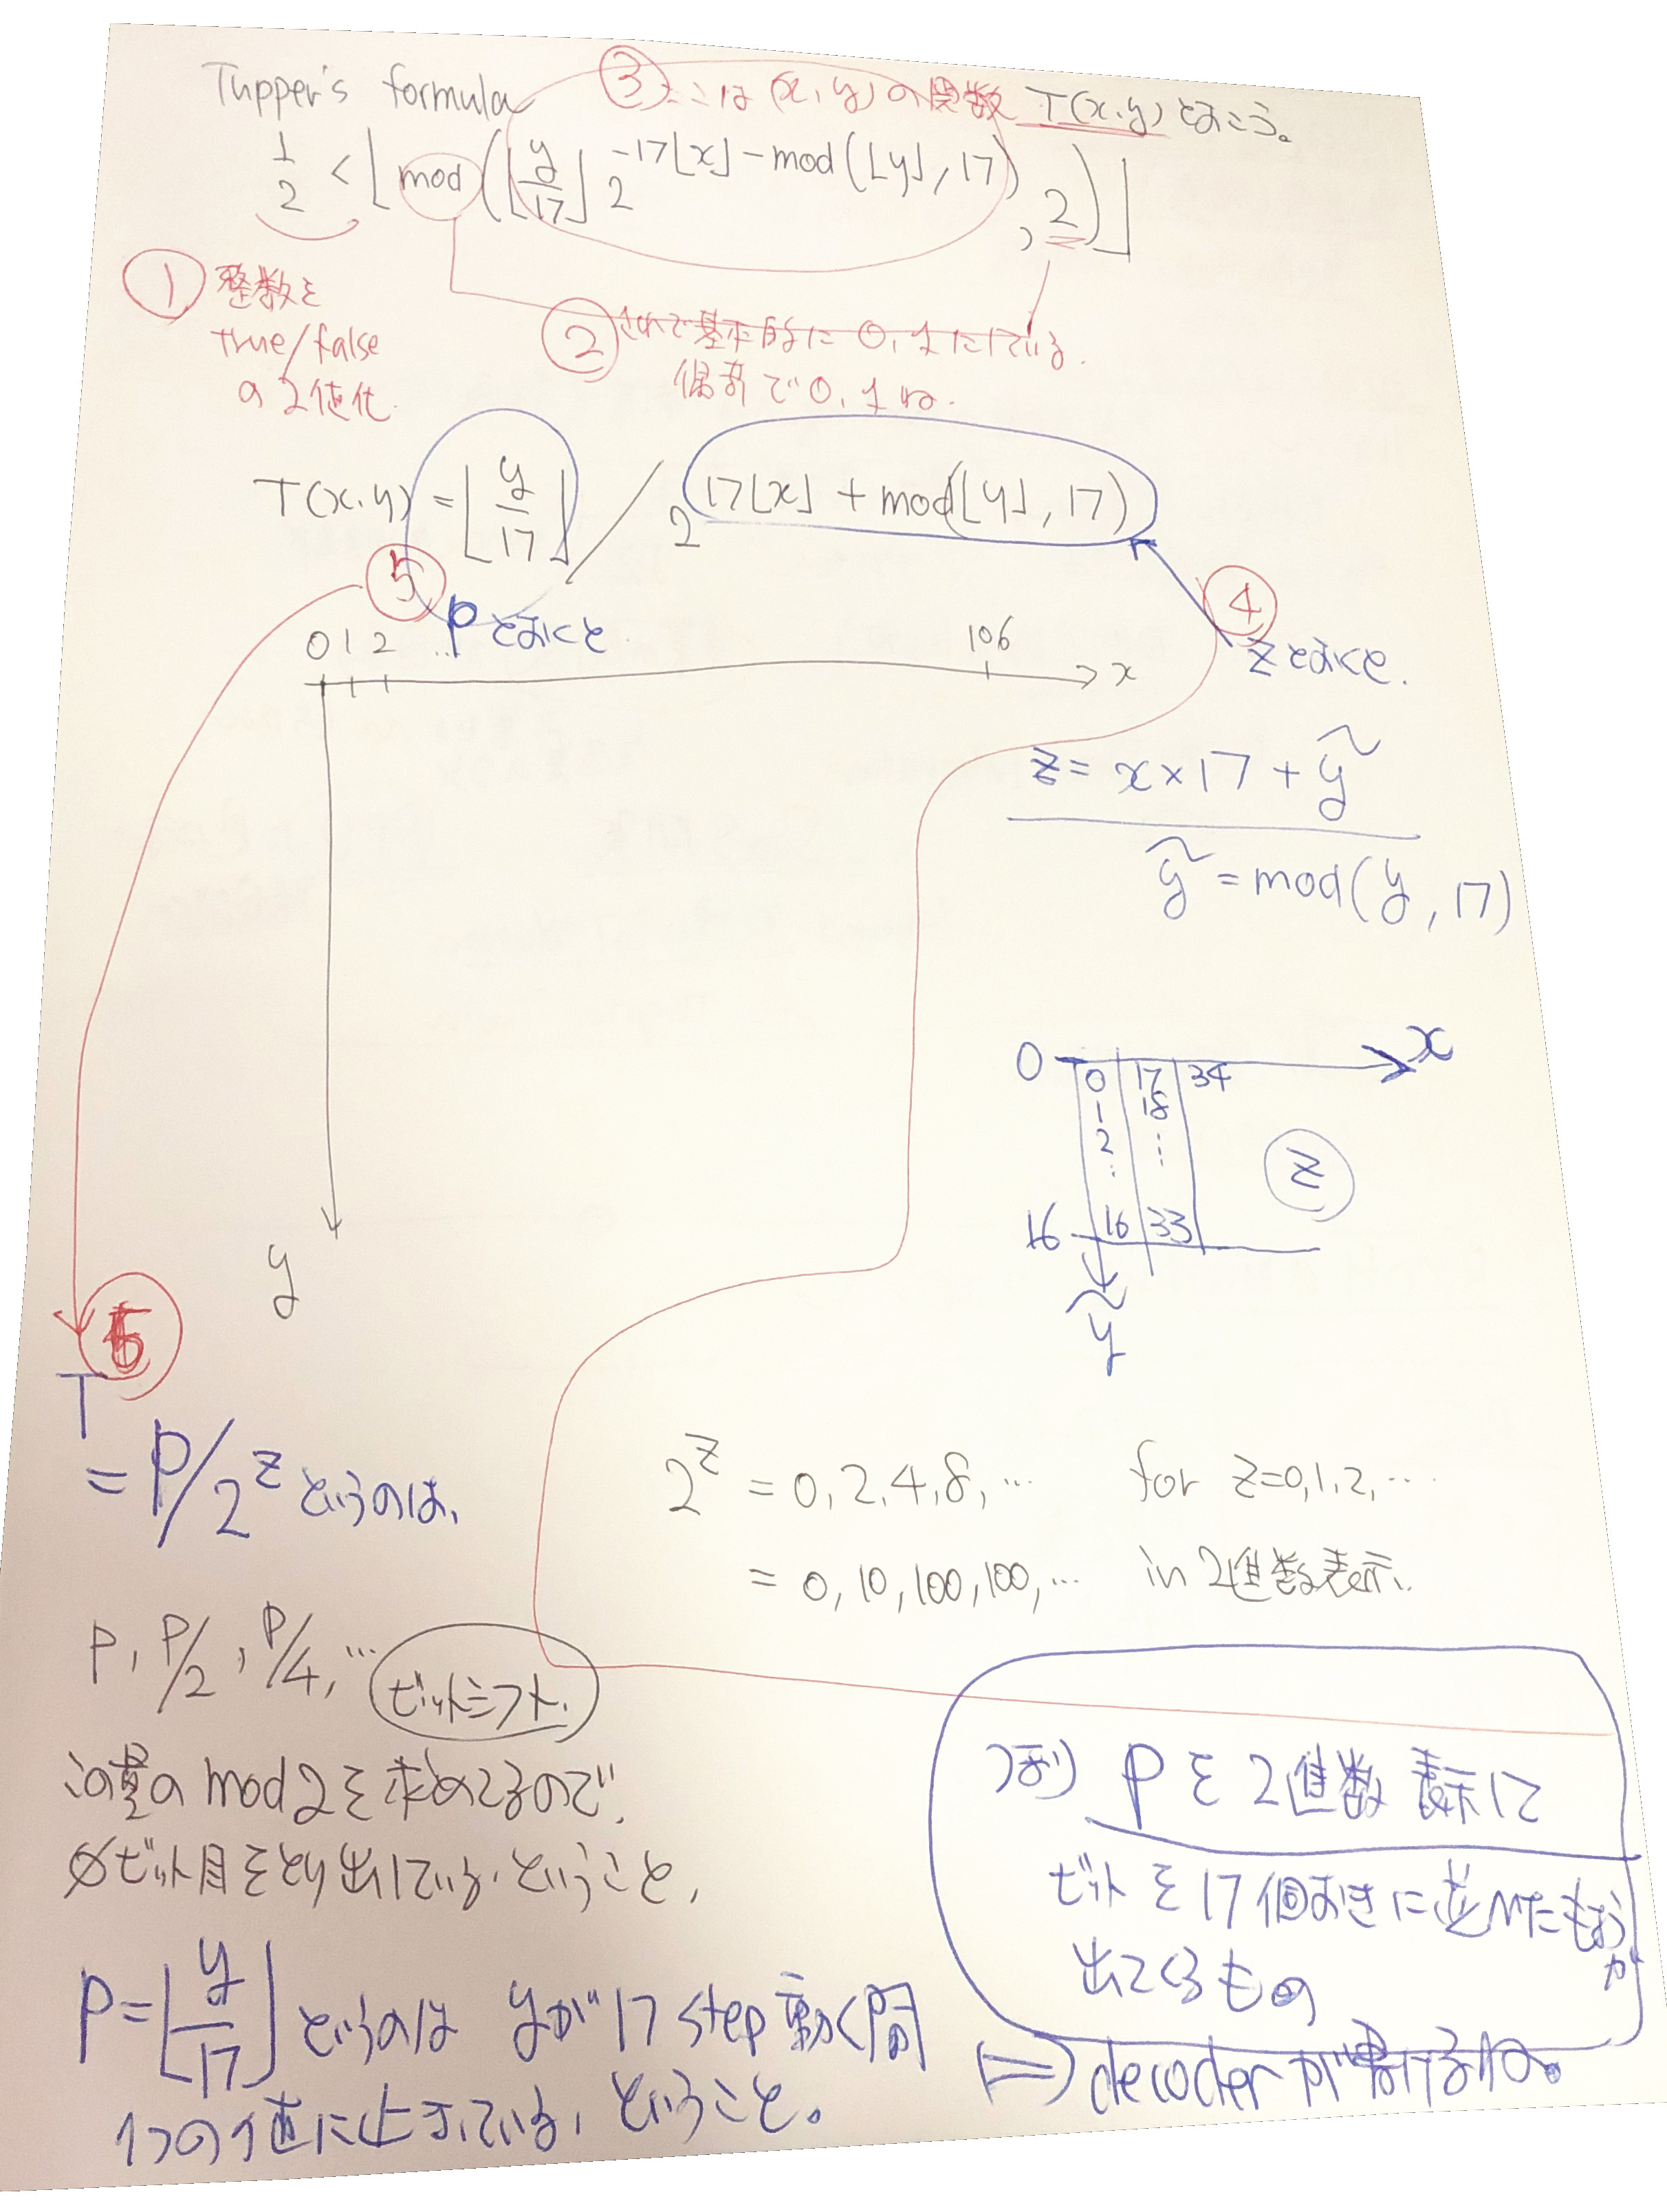 Tupper's formula
③ ここは (x, y) の関数 T(x.y) とおこう。
1/2 < ⌊mod(⌊y/17⌋ 2^(-17⌊x⌋-mod(⌊y⌋, 17)), 2)⌋
① 整数を
true/false
の2値化
② これで基本的に 0, 1 にしている.
偶奇で 0, 1 ね.
T(x.y) = ⌊y/17⌋ / 2^(17⌊x⌋ + mod(⌊y⌋, 17))
⑤
④
P とおくと
z とおくと.
0 1 2 ‥
106
x
z = x×17 + ỹ
ỹ = mod(y, 17)
y
0
x
0 17 34
1 18
2 ⋮
‥
16 16 33
z
ỹ
T
= P/2^z というのは,
2^z = 0, 2, 4, 8, … for z=0,1,2, …
= 0, 10, 100, 100, … in 2進数表示.
P, P/2, P/4, … ビットシフト.
この量の mod 2 を求めてるので,
0ビット目をとり出している. ということ,
P = ⌊y/17⌋ というのは yが 17 step 動く間
1つの値に止まっている, ということ。
つまり P を 2進数 表示して
ビットを17個おきに並べたものが
出てくるもの
⇒ decoder が書けるね。